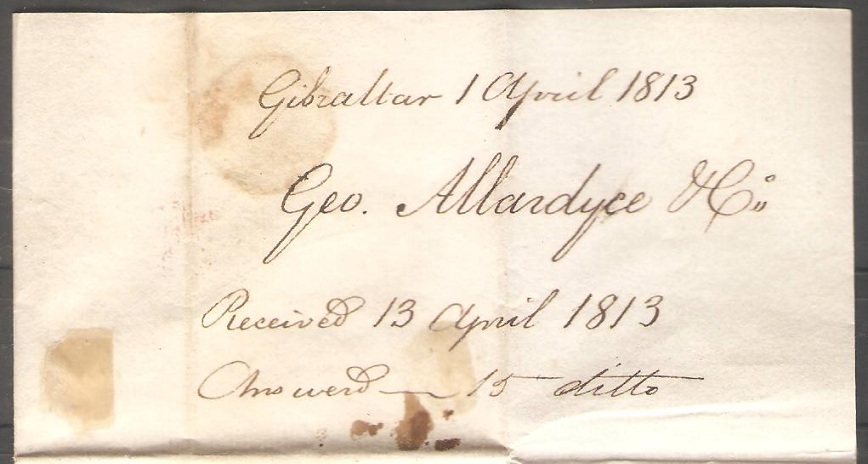 Gibraltar 1 April 1813
Geo. Allardyce & Co.
Received 13 April 1813
Answerd — 15 ditto